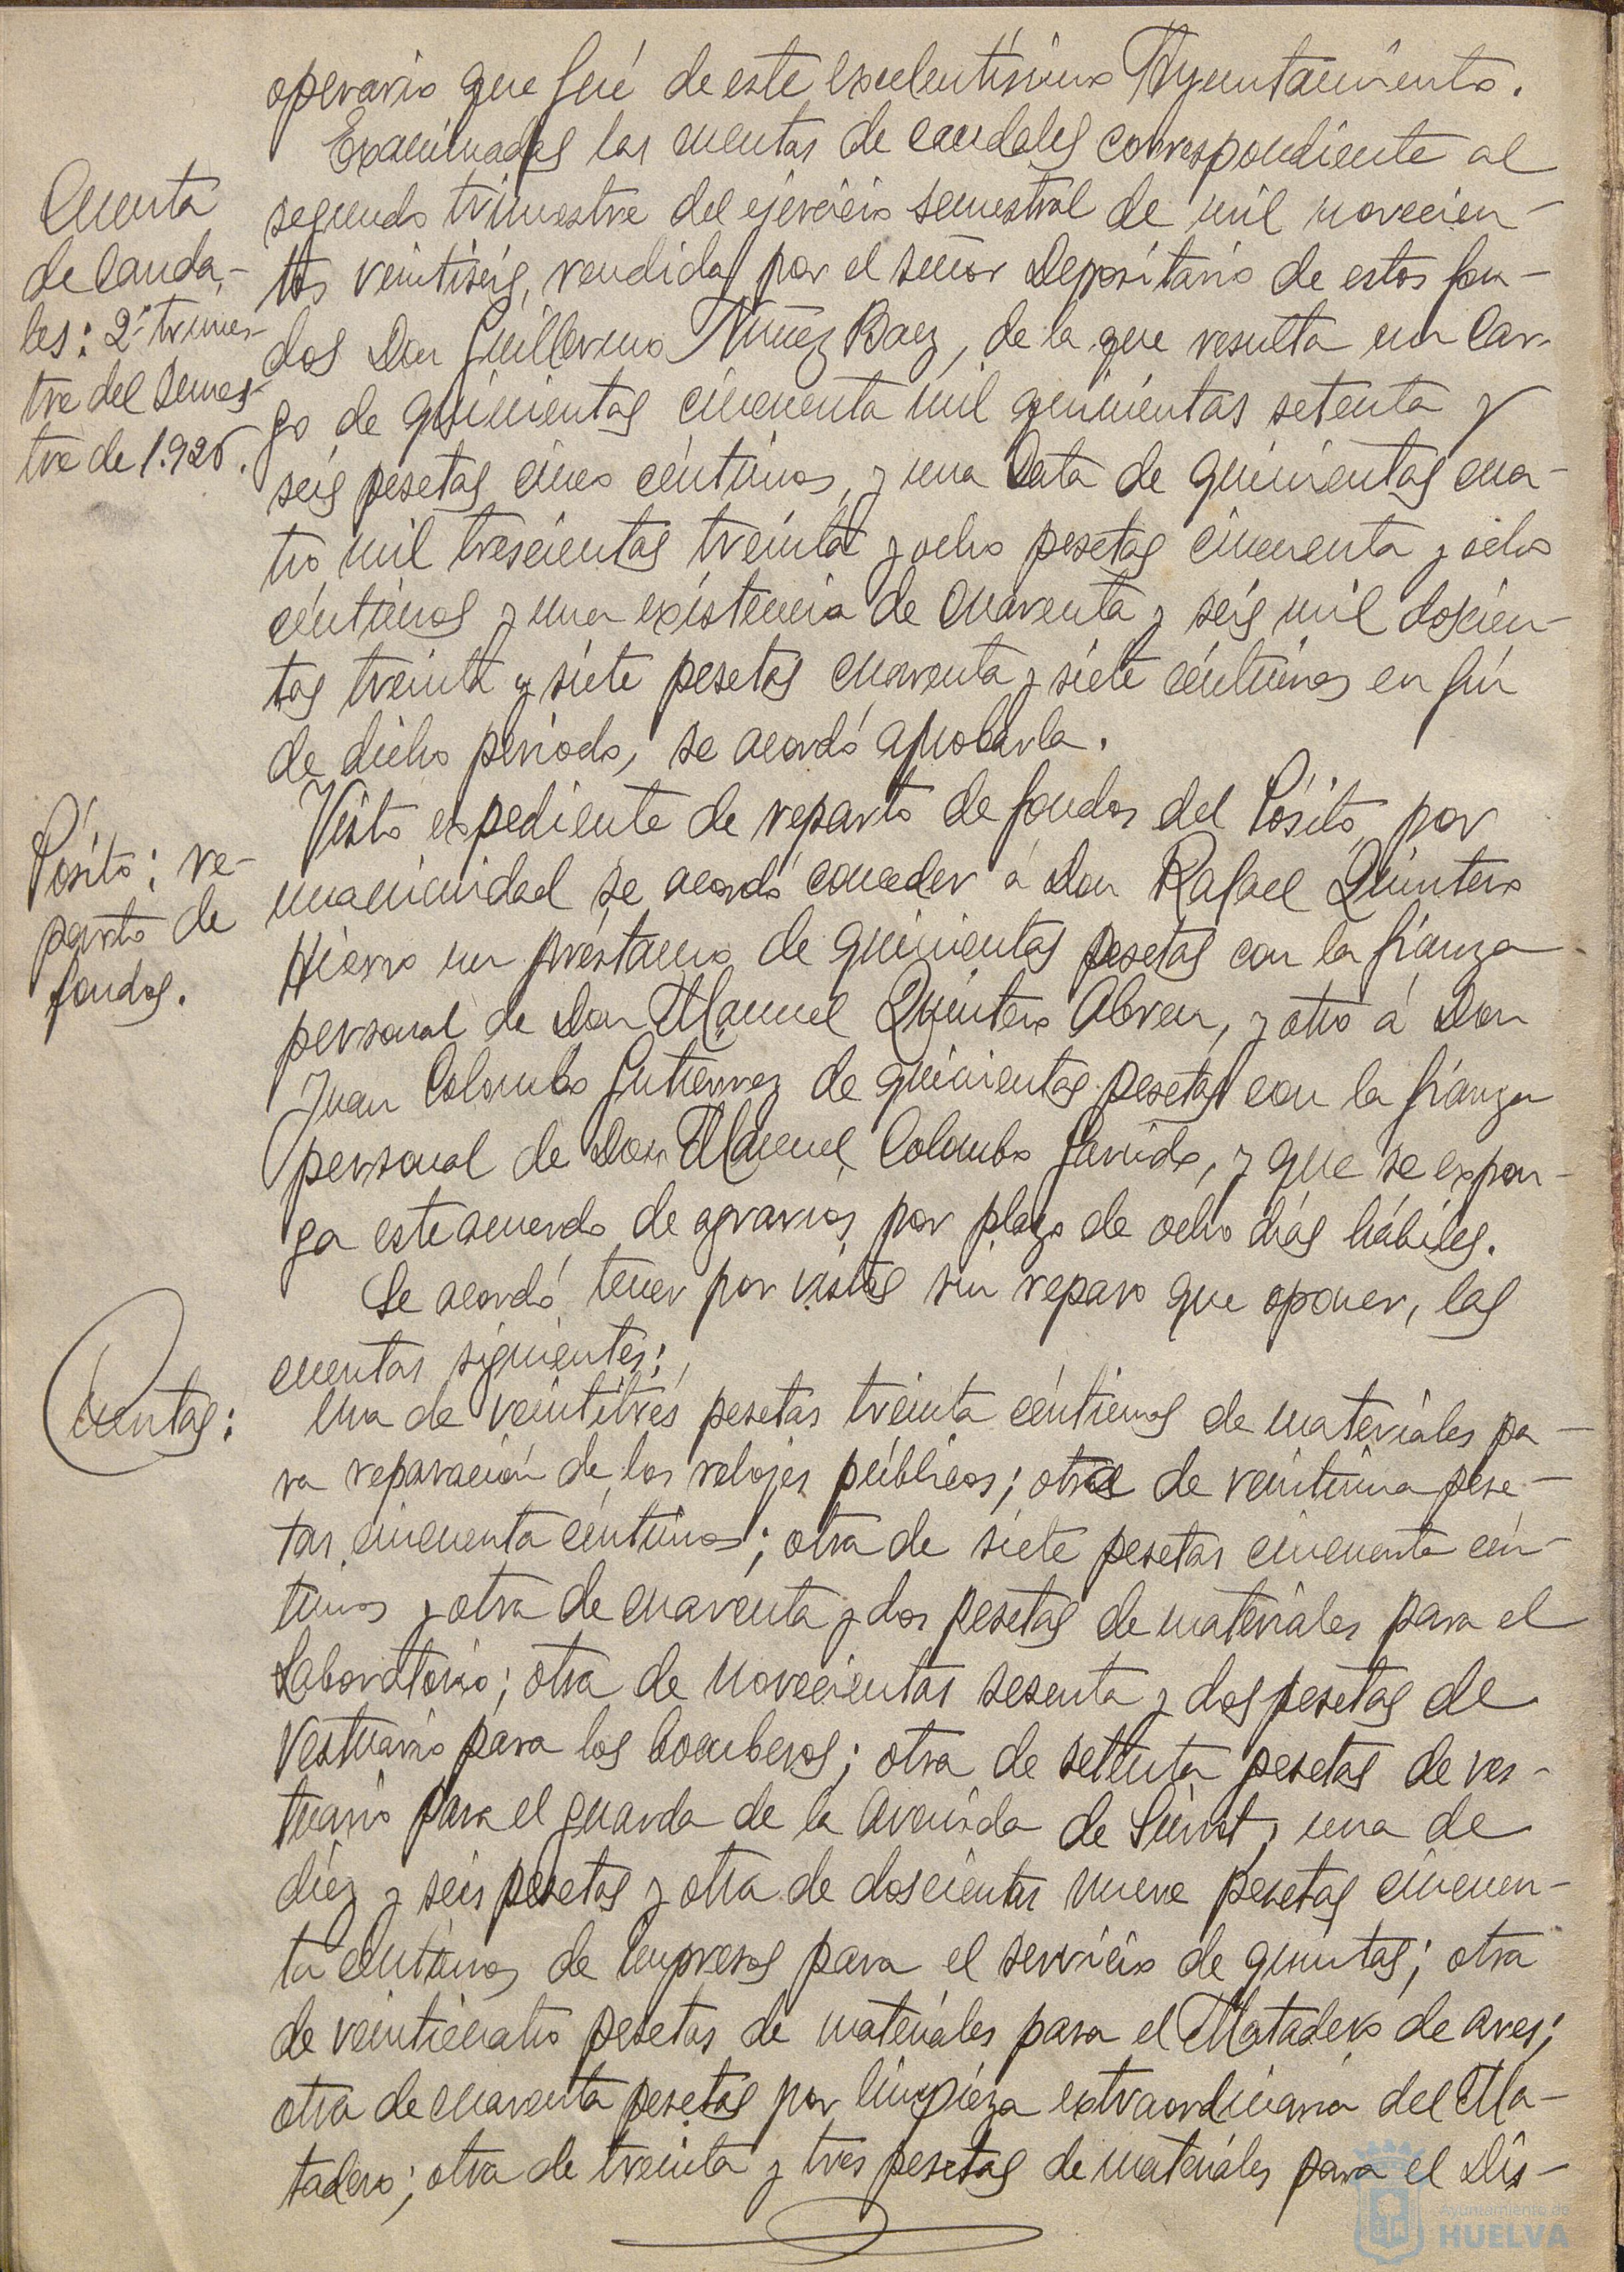 operario que fué de este Excelentísimo Ayuntamiento.
Examinadas las cuentas de caudales correspondiente al
segundo trimestre del ejercicio semestral de mil novecien-
tos veintiseis, rendidas por el señor Depositario de estos fon-
dos Don Guillermo Nuñez Baez, de la que resulta un Car-
go de quinientas cincuenta mil quinientas setenta y
seis pesetas cinco céntimos, y una Data de quinientas cua-
tro mil trescientas treinta y ocho pesetas cincuenta y ocho
céntimos y una existencia de cuarenta y seis mil doscien-
tas treinta y siete pesetas cuarenta y siete céntimos en fin
de dicho período, se acordó aprobarla.
Visto expediente de reparto de fondos del Pósito, por
unanimidad se acordó conceder á Don Rafael Quintero
Hierro un préstamo de quinientas pesetas con la fianza
personal de Don Manuel Quintero Abreu, y otro á Don
Juan Colombo Gutierrez de quinientas pesetas con la fianza
personal de Don Manuel Colombo Garrido, y que se expon-
ga este acuerdo de agravios por plazo de ocho días hábiles.
Se acordó tener por vistas sin reparo que oponer, las
cuentas siguientes:
Una de veintitrés pesetas treinta céntimos de materiales pa-
ra reparación de los relojes públicos; otra de veintiuna pese-
tas cincuenta céntimos; otra de siete pesetas cincuenta cén-
timos y otra de cuarenta y dos pesetas de materiales para el
Laboratorio; otra de novecientas sesenta y dos pesetas de
vestuario para los bomberos; otra de setenta pesetas de ves-
tuario para el guarda de la Avenida de Siurot, una de
diez y seis pesetas y otra de doscientas nueve pesetas cincuen-
ta céntimos de impresos para el servicio de quintas; otra
de veinticuatro pesetas de materiales para el Matadero de aves;
otra de cuarenta pesetas por limpieza extraordinaria del Ma-
tadero; otra de treinta y tres pesetas de materiales para el Dis-
Cuenta
de Cauda-
les: 2º trimes-
tre del Semes-
tre de 1.926.
Pósito: re-
parto de
fondos.
Cuentas:
Ayuntamiento de
HUELVA